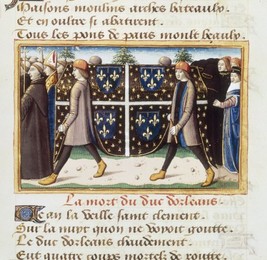 Maisons moulins arches bateauly.
Et en oultre si abatirent.
Tous les pons de paris moult beauly.
La mort du duc dorleans.
Tan la veille saint clement.
Sur la nuyt quon ne voyoit goutte.
Le duc dorleans chauldement.
Eut quatre coups mortelz de routte.